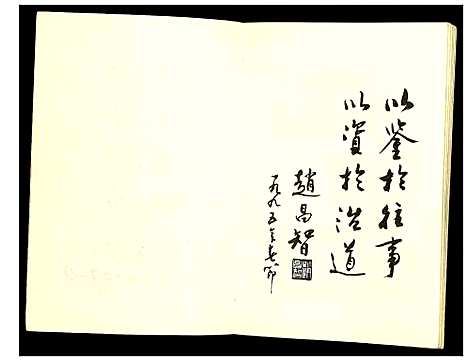 以鉴於往事
以资於治道
趙昌智
一九九五年春節